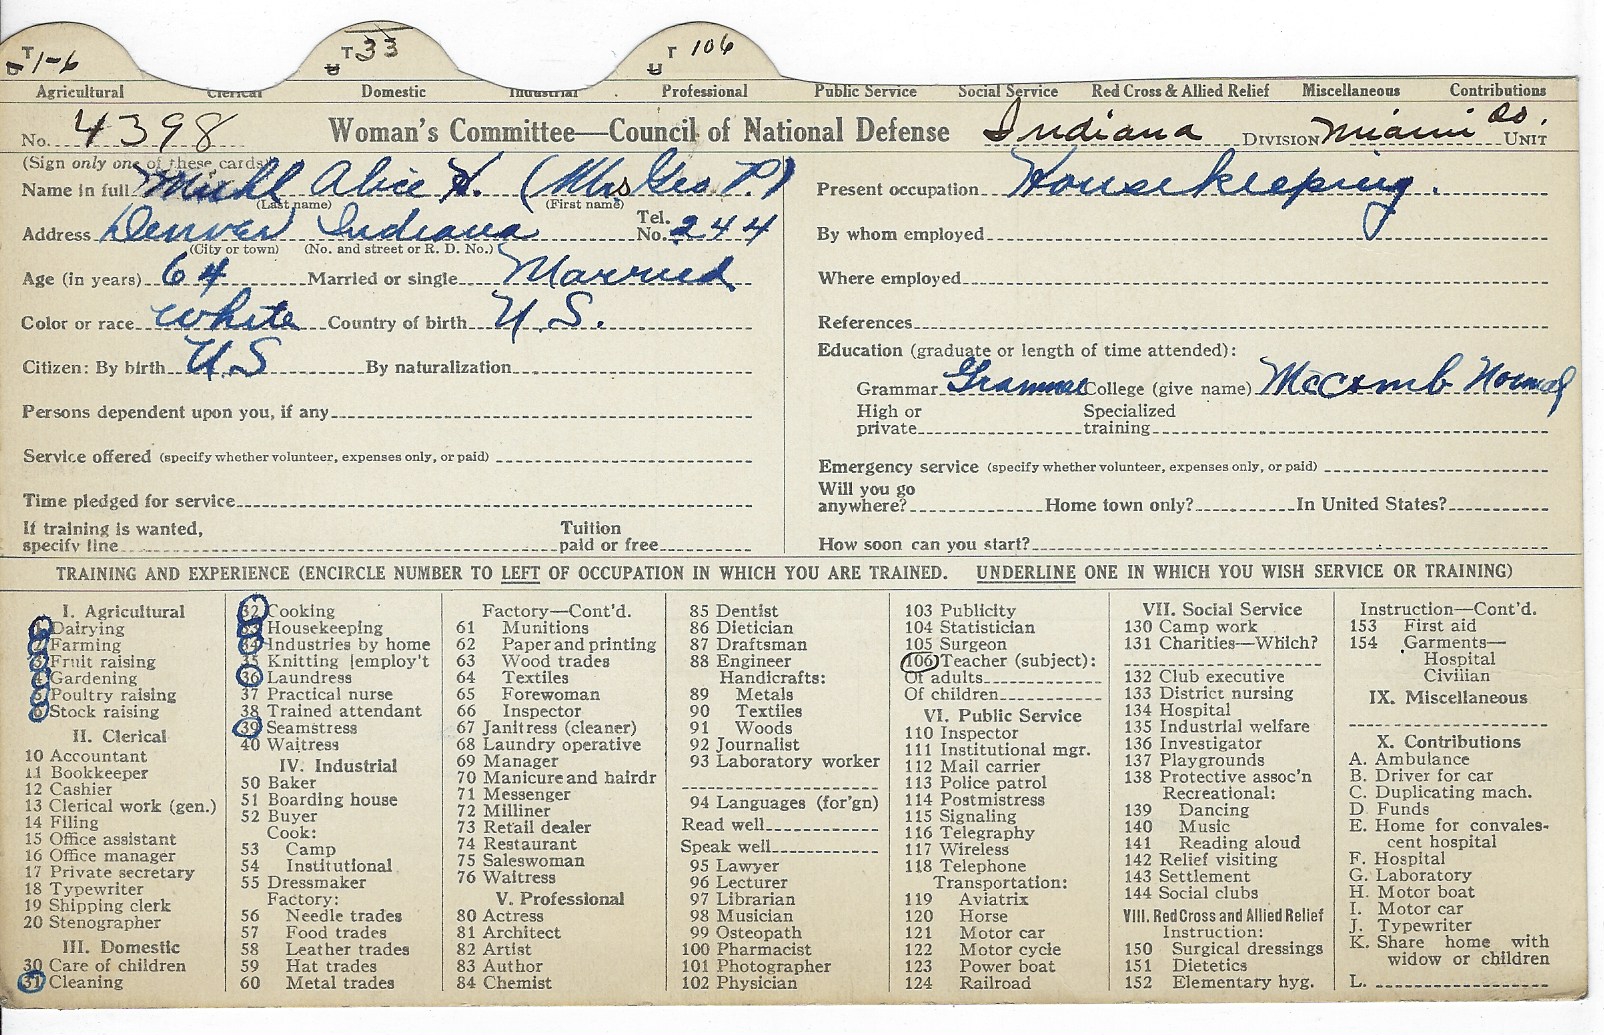 T 1-6 T 33 T 106
U U U
Agricultural Clerical Domestic Industrial Professional Public Service Social Service Red Cross & Allied Relief Miscellaneous Contributions
No. 4398 Woman's Committee—Council of National Defense Indiana DIVISION Miami Co. UNIT
(Sign only one of these cards)
Name in full Alice H. (Mrs Geo P.)
(Last name) (First name)
Address Denver Indiana Tel. No. 244
(City or town) (No. and street or R. D. No.)
Age (in years) 64 Married or single Married
Color or race White Country of birth U.S.
Citizen: By birth U.S By naturalization
Persons dependent upon you, if any
Service offered (specify whether volunteer, expenses only, or paid)
Time pledged for service
If training is wanted, Tuition
specify line paid or free
Present occupation Housekeeping.
By whom employed
Where employed
References
Education (graduate or length of time attended):
Grammar Grammar College (give name) McComb Normal
High or Specialized
private training
Emergency service (specify whether volunteer, expenses only, or paid)
Will you go
anywhere? Home town only? In United States?
How soon can you start?
TRAINING AND EXPERIENCE (ENCIRCLE NUMBER TO LEFT OF OCCUPATION IN WHICH YOU ARE TRAINED. UNDERLINE ONE IN WHICH YOU WISH SERVICE OR TRAINING)
I. Agricultural
1 Dairying
2 Farming
3 Fruit raising
4 Gardening
5 Poultry raising
6 Stock raising
II. Clerical
10 Accountant
11 Bookkeeper
12 Cashier
13 Clerical work (gen.)
14 Filing
15 Office assistant
16 Office manager
17 Private secretary
18 Typewriter
19 Shipping clerk
20 Stenographer
III. Domestic
30 Care of children
31 Cleaning
32 Cooking
33 Housekeeping
34 Industries by home
35 Knitting [employ't
36 Laundress
37 Practical nurse
38 Trained attendant
39 Seamstress
40 Waitress
IV. Industrial
50 Baker
51 Boarding house
52 Buyer
Cook:
53 Camp
54 Institutional
55 Dressmaker
Factory:
56 Needle trades
57 Food trades
58 Leather trades
59 Hat trades
60 Metal trades
Factory—Cont'd.
61 Munitions
62 Paper and printing
63 Wood trades
64 Textiles
65 Forewoman
66 Inspector
67 Janitress (cleaner)
68 Laundry operative
69 Manager
70 Manicure and hairdr
71 Messenger
72 Milliner
73 Retail dealer
74 Restaurant
75 Saleswoman
76 Waitress
V. Professional
80 Actress
81 Architect
82 Artist
83 Author
84 Chemist
85 Dentist
86 Dietician
87 Draftsman
88 Engineer
Handicrafts:
89 Metals
90 Textiles
91 Woods
92 Journalist
93 Laboratory worker
94 Languages (for'gn)
Read well
Speak well
95 Lawyer
96 Lecturer
97 Librarian
98 Musician
99 Osteopath
100 Pharmacist
101 Photographer
102 Physician
103 Publicity
104 Statistician
105 Surgeon
106 Teacher (subject):
Of adults
Of children
VI. Public Service
110 Inspector
111 Institutional mgr.
112 Mail carrier
113 Police patrol
114 Postmistress
115 Signaling
116 Telegraphy
117 Wireless
118 Telephone
Transportation:
119 Aviatrix
120 Horse
121 Motor car
122 Motor cycle
123 Power boat
124 Railroad
VII. Social Service
130 Camp work
131 Charities—Which?
132 Club executive
133 District nursing
134 Hospital
135 Industrial welfare
136 Investigator
137 Playgrounds
138 Protective assoc'n
Recreational:
139 Dancing
140 Music
141 Reading aloud
142 Relief visiting
143 Settlement
144 Social clubs
VIII. Red Cross and Allied Relief
Instruction:
150 Surgical dressings
151 Dietetics
152 Elementary hyg.
Instruction—Cont'd.
153 First aid
154 Garments—
Hospital
Civilian
IX. Miscellaneous
X. Contributions
A. Ambulance
B. Driver for car
C. Duplicating mach.
D. Funds
E. Home for convales-
cent hospital
F. Hospital
G. Laboratory
H. Motor boat
I. Motor car
J. Typewriter
K. Share home with
widow or children
L.